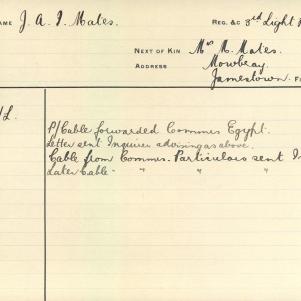 NAME J. A. I. Mates. REG. &c 3rd Light
NEXT OF KIN Mrs M. Mates.
ADDRESS Mowbray,
Jamestown.
P/Cable forwarded Commrs Egypt.
Letter sent Inquirer advising as above.
Cable from Commrs. Particulars sent
Later Cable " " "